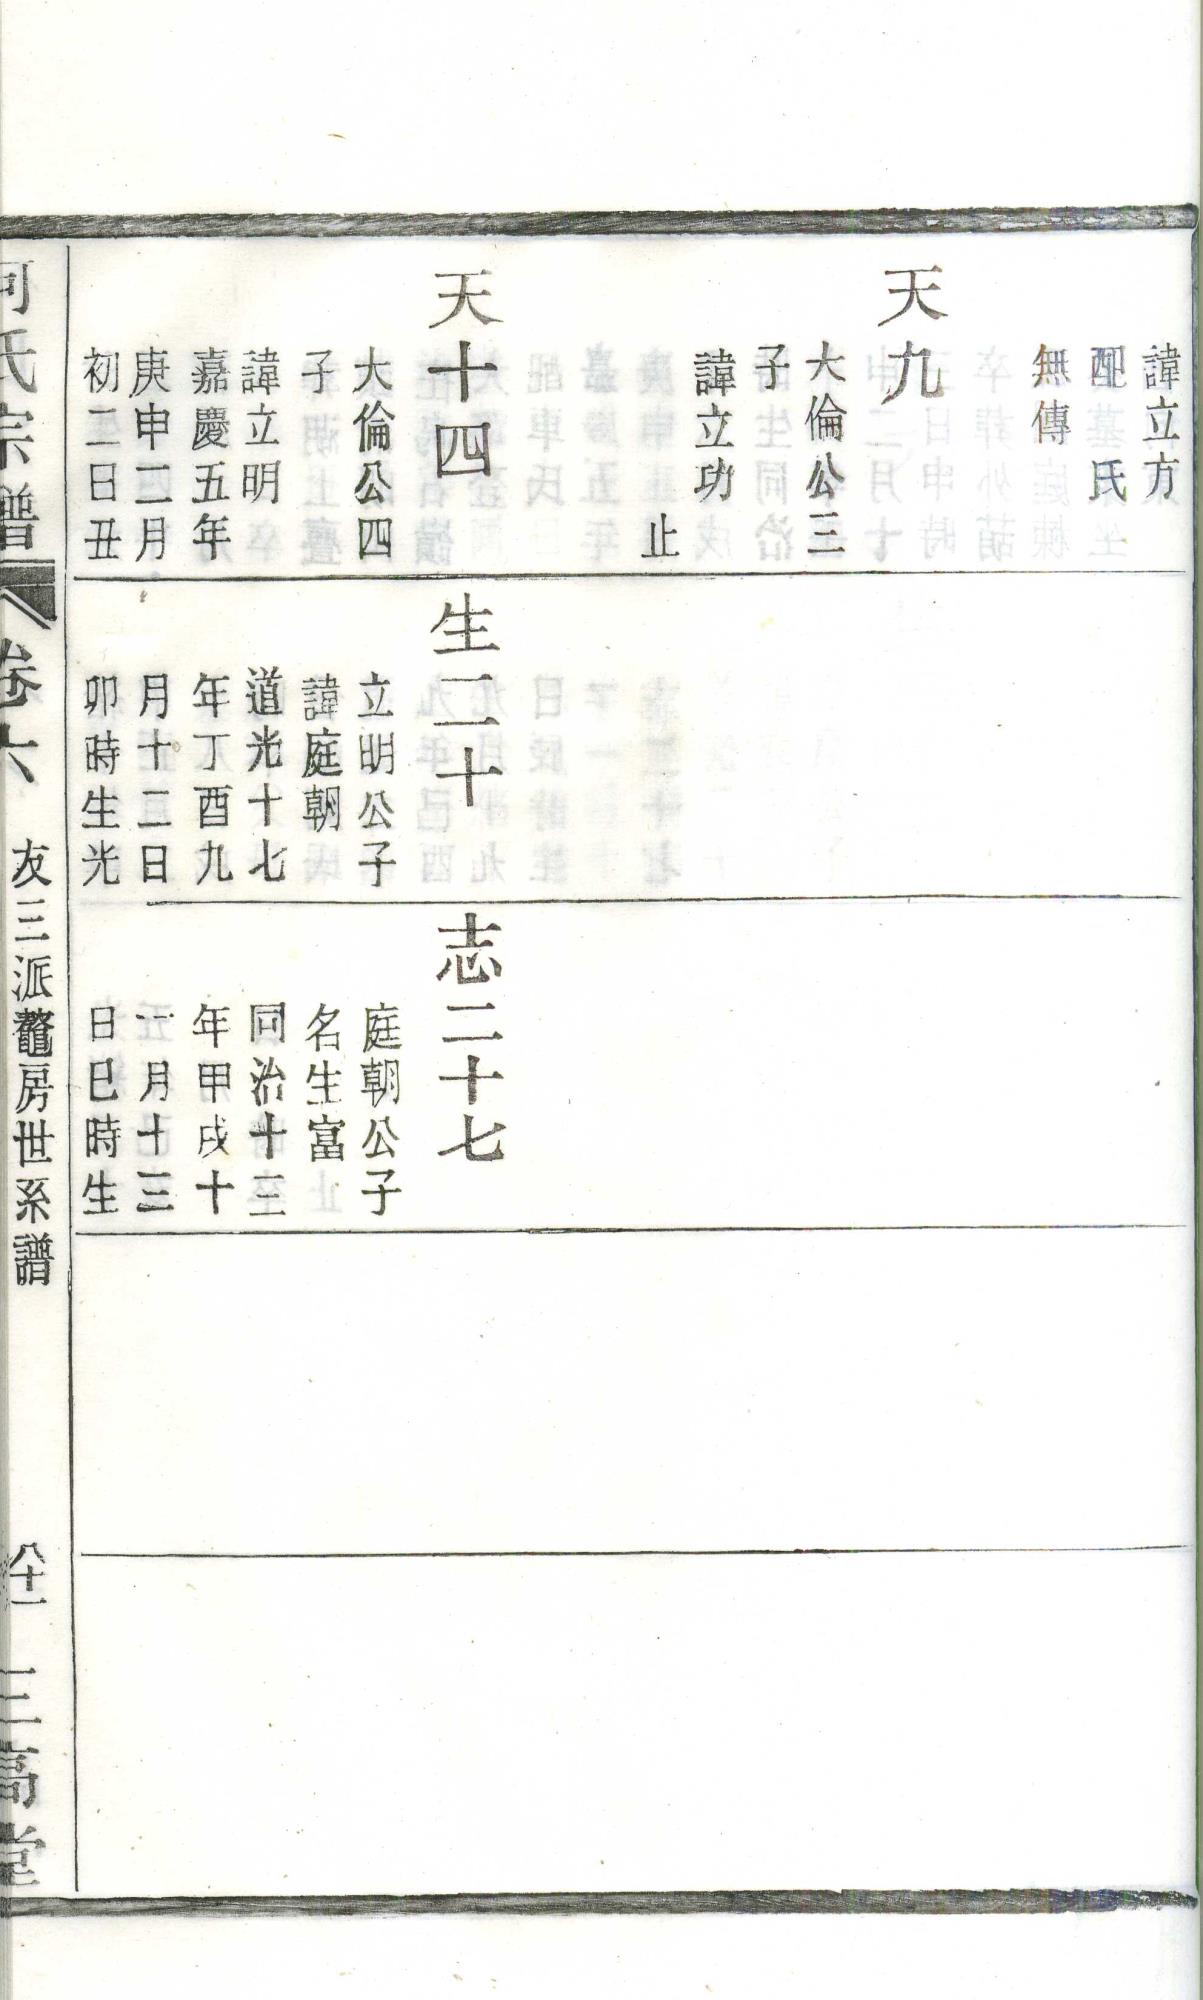 諱立方
配　氏
無傳
天九
大倫公三
子
諱立功
止
天十四
大倫公四
子
諱立明
嘉慶五年
庚申二月
初二日丑
生二十
立明公子
諱庭朝
道光十七
年丁酉九
月十二日
卯時生光
志二十七
庭朝公子
名生富
同治十三
年甲戌十
一月十三
日巳時生
氏宗譜
卷六
友三派鼇房世系譜
八十一
三高堂